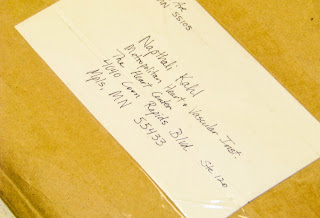 the
MN 55105
Napthali Kahl
Metropolitan Heart & Vascular Inst.
The Heart Center
4040 Coon Rapids Blvd. Ste 120
Mpls, MN 55433